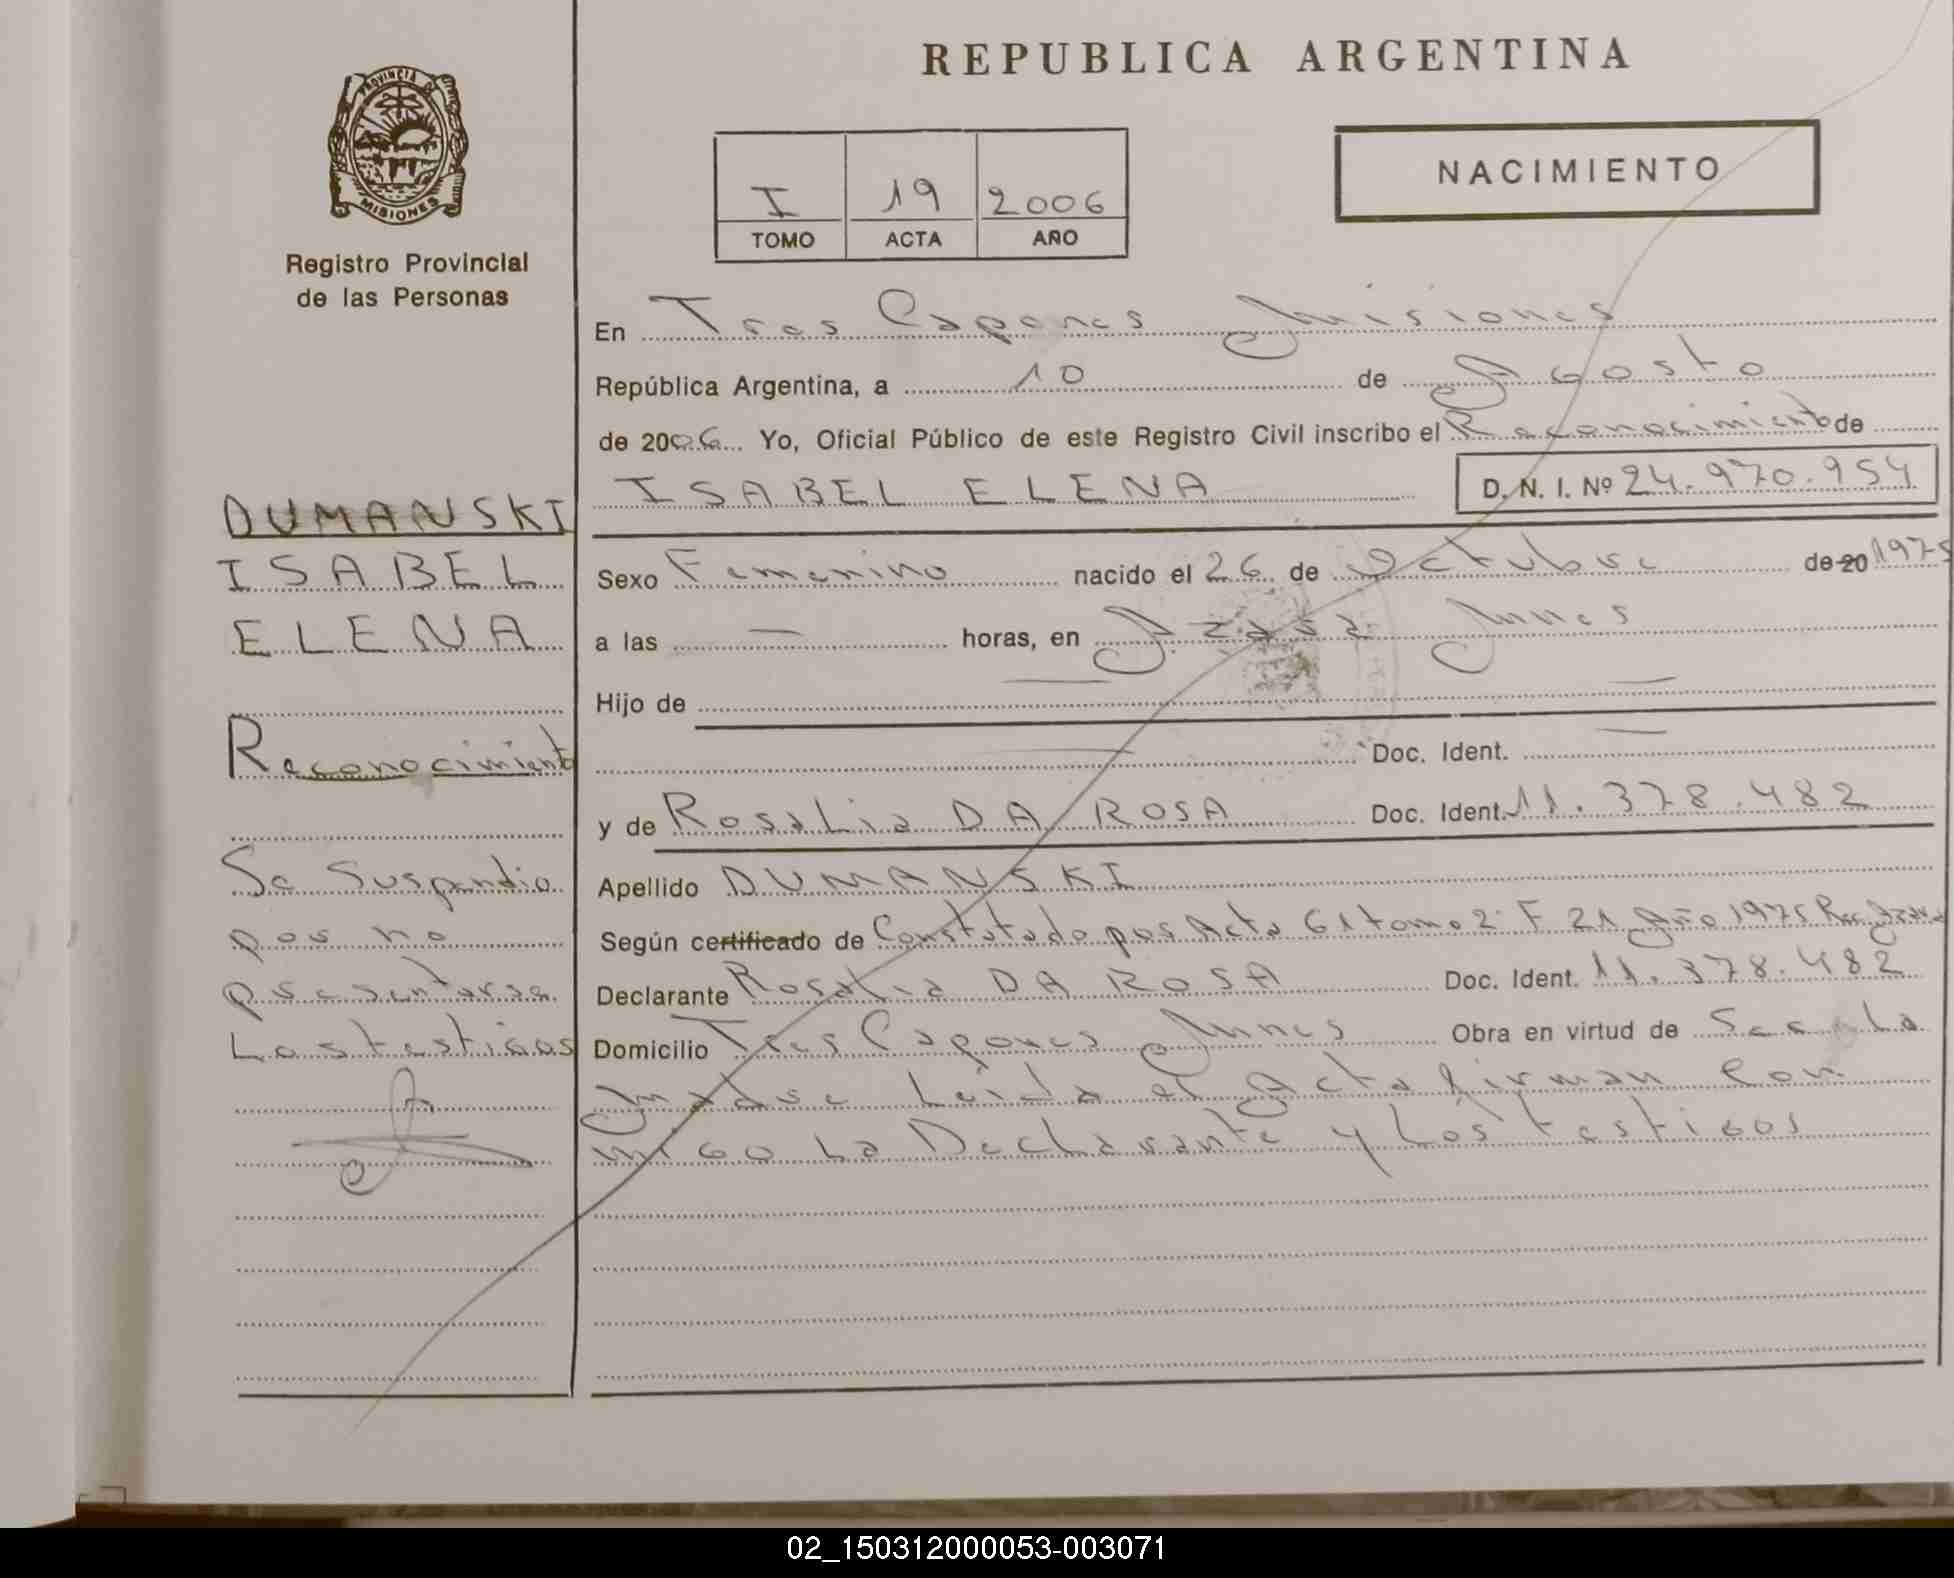 REPUBLICA ARGENTINA
PROVINCIA DE
MISIONES
Registro Provincial
de las Personas
I 19 2006
TOMO ACTA AÑO
NACIMIENTO
En Tres Capones Misiones
República Argentina, a 10 de Agosto
de 2006 Yo, Oficial Público de este Registro Civil inscribo el Reconocimiento de
ISABEL ELENA D. N. I. Nº 24.970.954
Sexo Femenino nacido el 26 de Octubre de 20 1975
a las — horas, en Azara Mnes
Hijo de — —
— Doc. Ident. —
y de Rosalia DA ROSA Doc. Ident. 11.378.482
Apellido DUMANSKI
Según certificado de Constatado por Acta 61 tomo 2 F 21 Año 1975 Reg. Azara
Declarante Rosalia DA ROSA Doc. Ident. 11.378.482
Domicilio Tres Capones Mnes Obra en virtud de Ser La
Madre Leida el Acta firman Con
migo La Declarante y Los testigos
DUMANSKI
ISABEL
ELENA
Reconocimiento
Se Suspendio
por no
presentarse
Los testigos
02_150312000053-003071